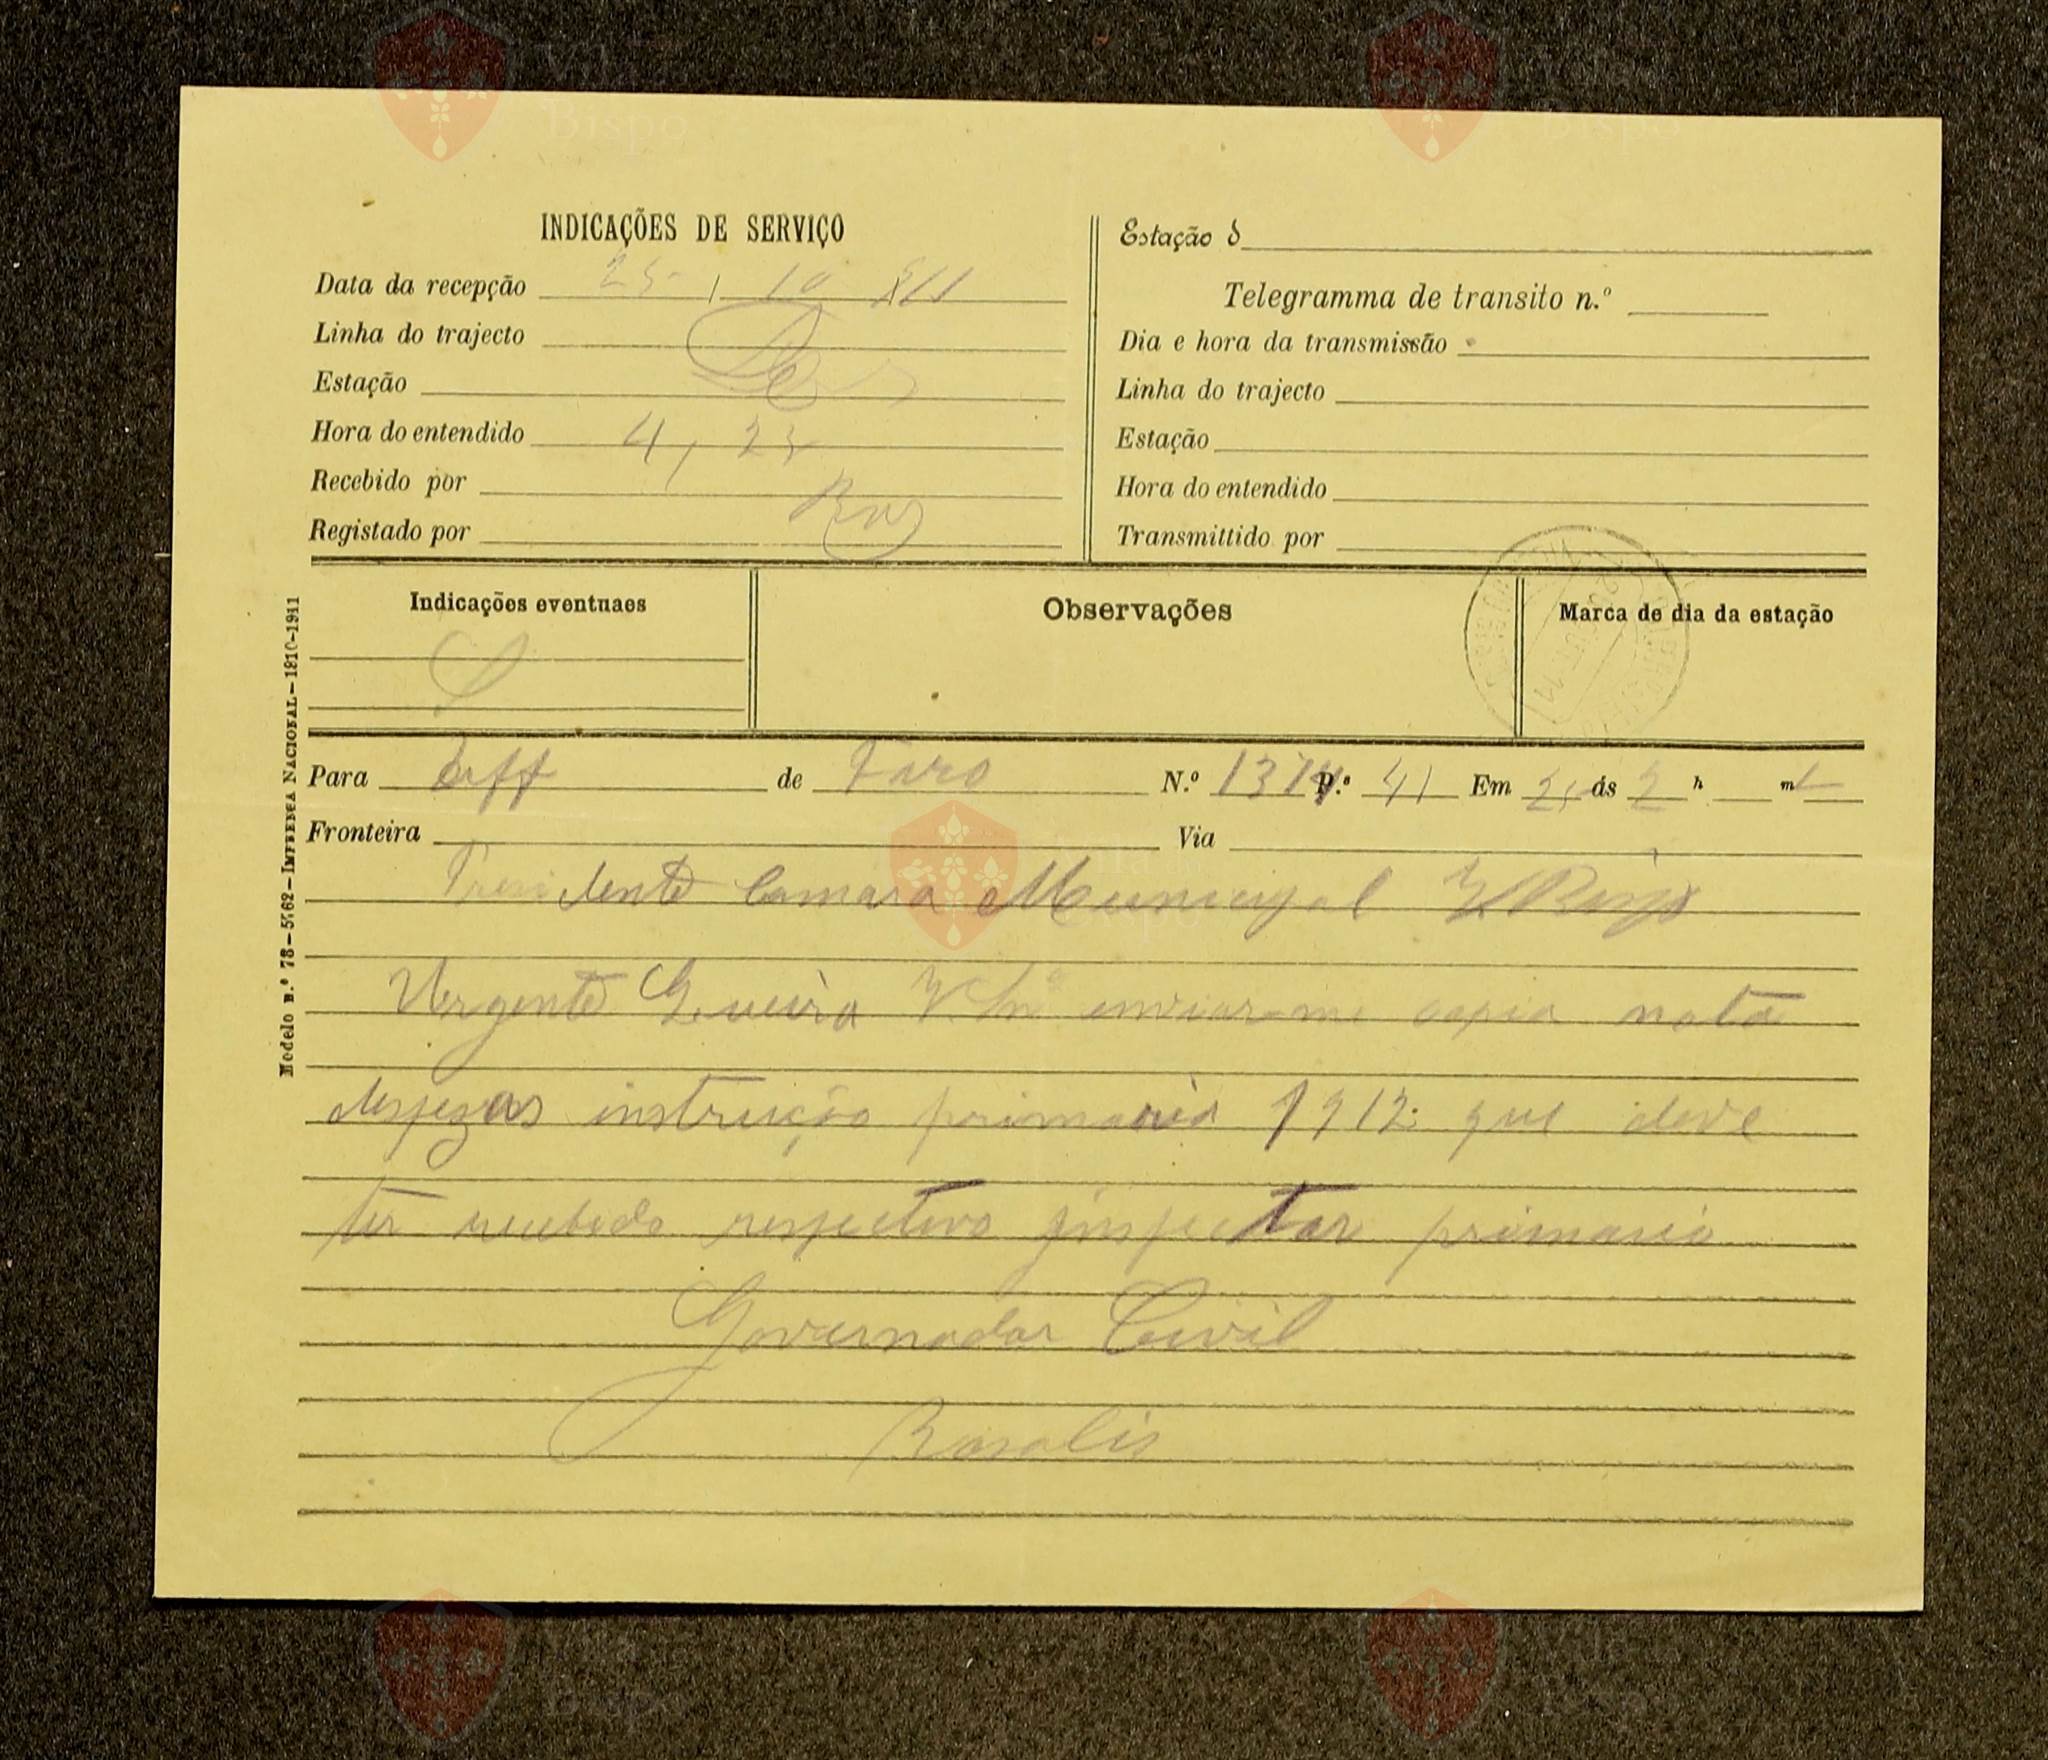 INDICAÇÕES DE SERVIÇO
Data da recepção 25 10 911
Linha do trajecto
Estação
Hora do entendido 4, 25
Recebido por
Registado por
Estação d
Telegramma de transito n.º
Dia e hora da transmissão
Linha do trajecto
Estação
Hora do entendido
Transmittido por
Indicações eventuaes
Observações
Marca de dia da estação
Modelo n.º 78—5762—IMPRENSA NACIONAL—1910-1911
Para de Faro N.º 1374 P.ª 41 Em 25 ás 2 h m
Fronteira Via
Presidente Camara Municipal V Bispo
Urgente Queira V enviar-me copia nota
despezas instrução primaria 1912 que deve
ter recebido respectivo inspector primario
Governador Civil
Vila do Bispo